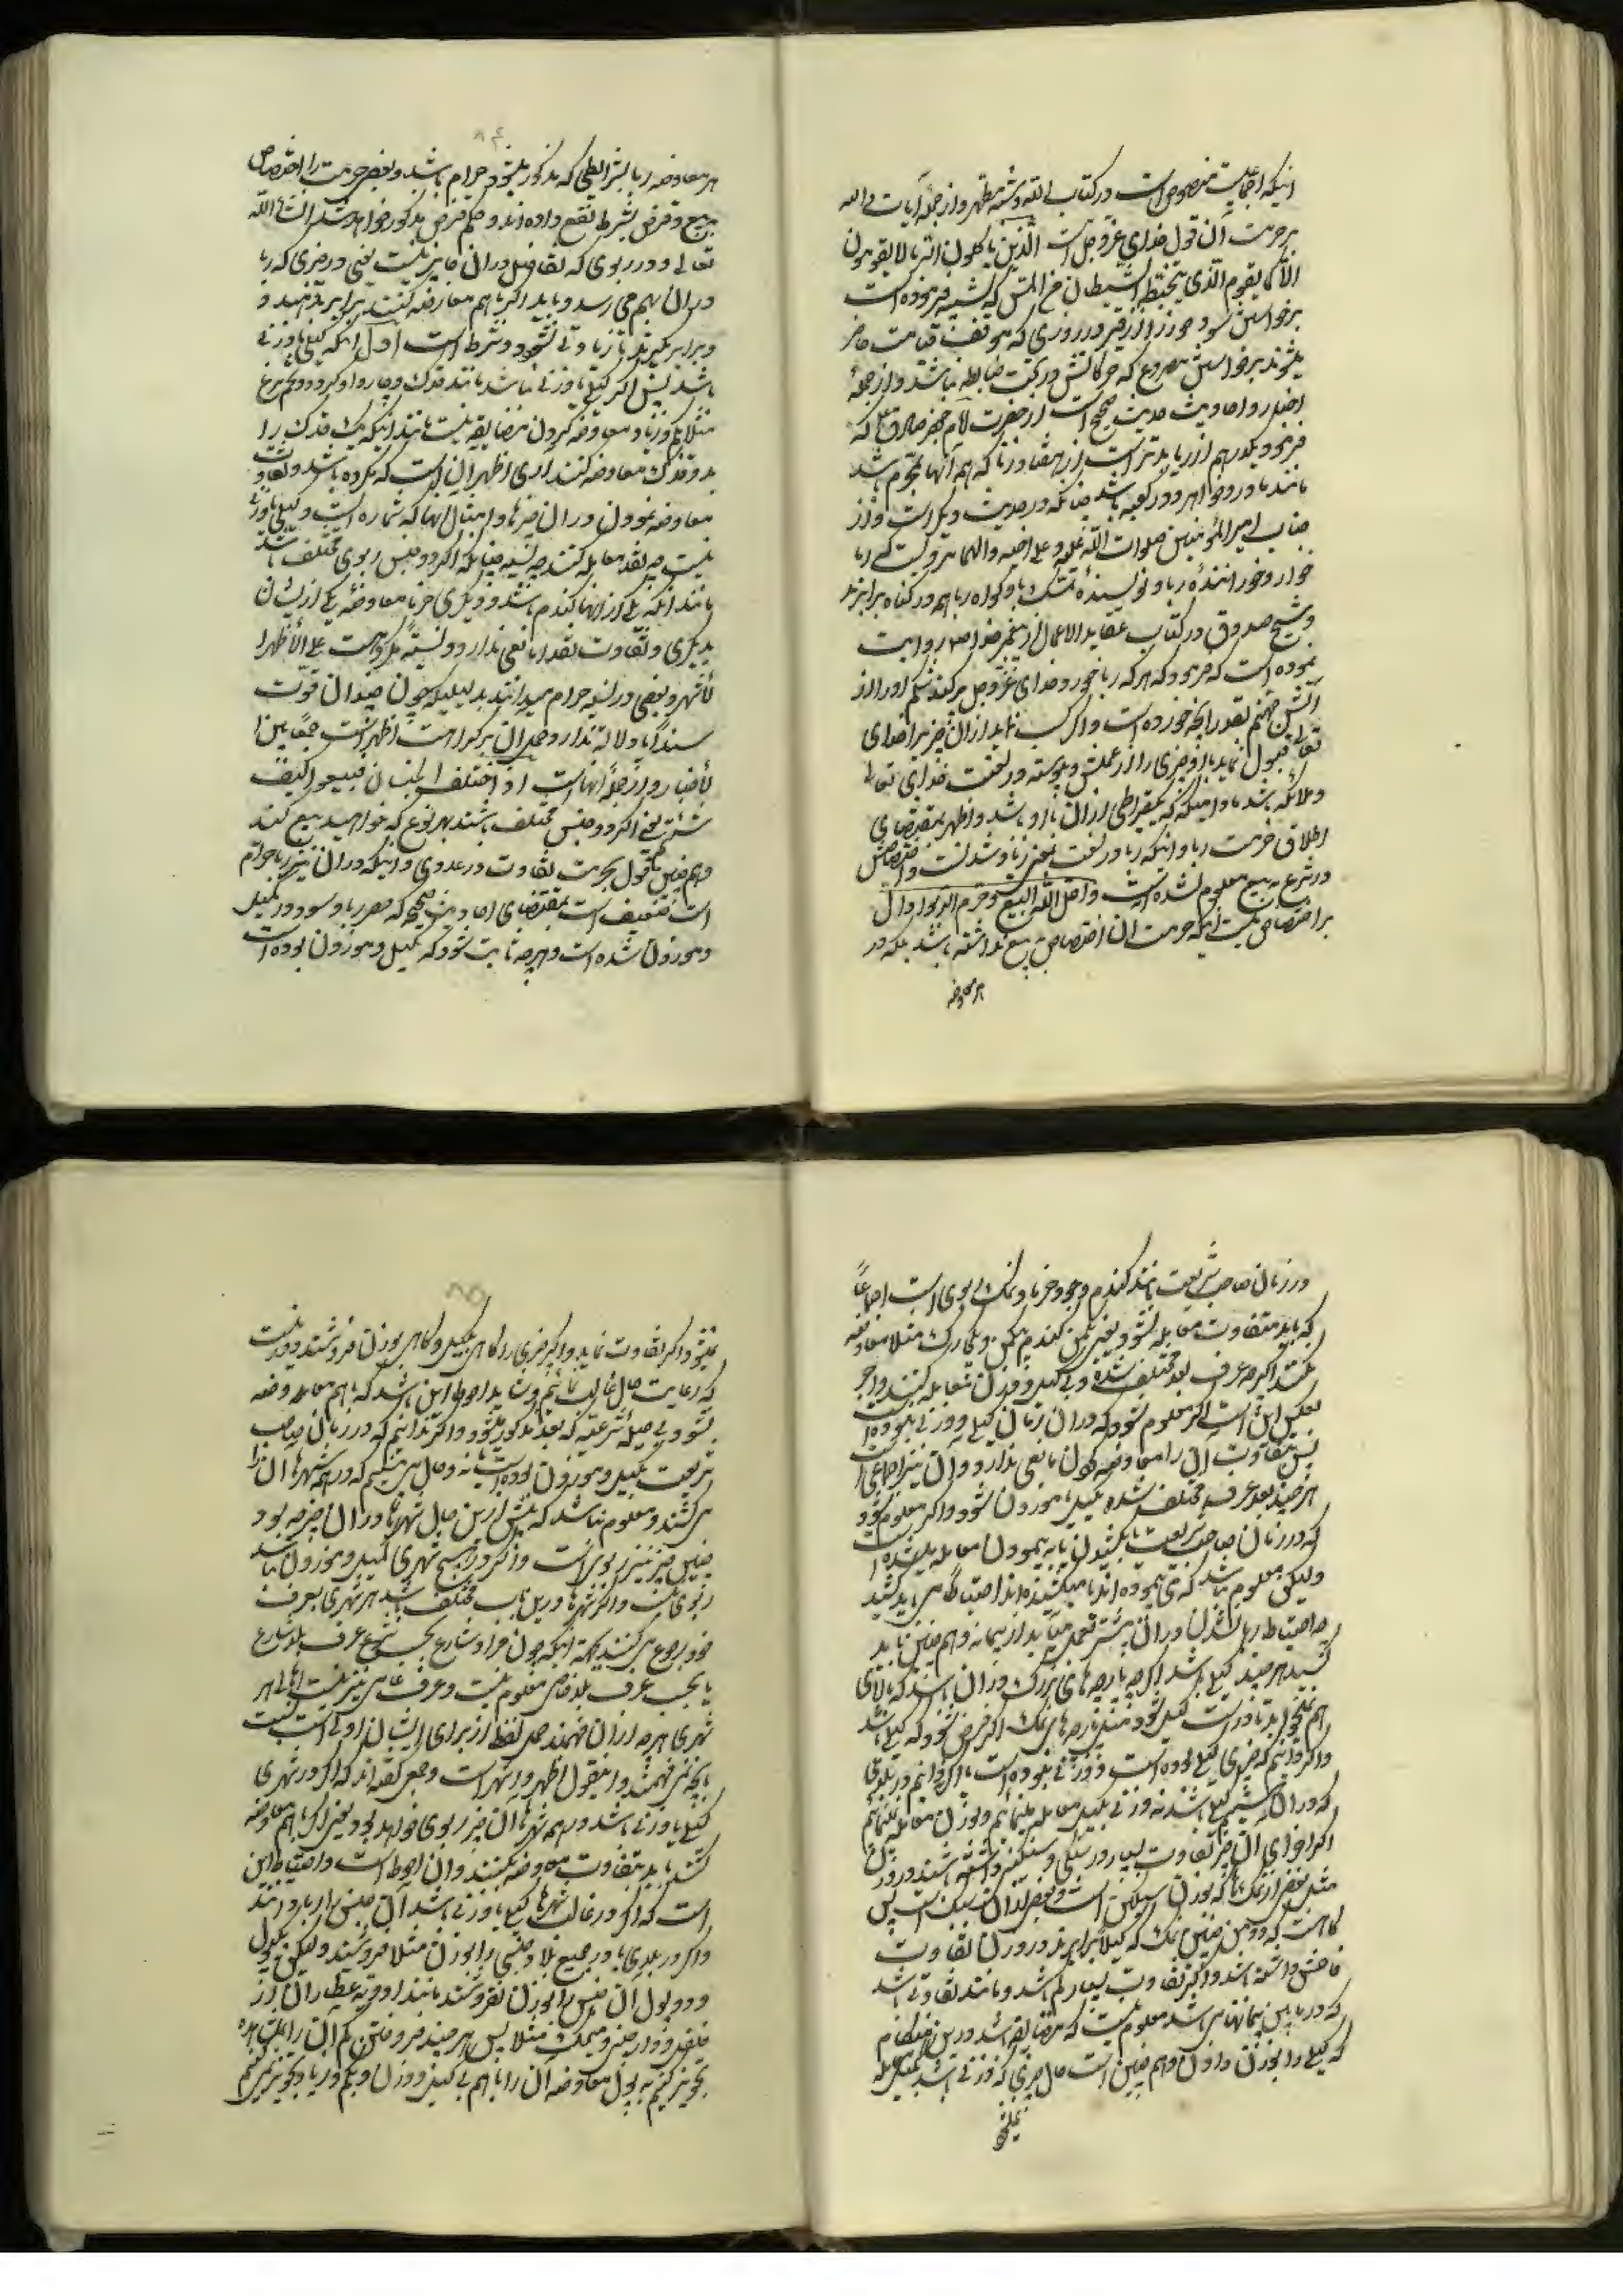 اینکه اجماعیست منصوص است در کتاب الله و سنّت مطهر و از جملهٔ آیات داله
بر حرمت آن قول خدای عزّوجل است الّذین یاکلون الربا لا یقومون
الّا کما یقوم الّذی یتخبّطه الشیطان من المسّ که تشبیه فرموده است
برخواستن سود خورنده از قبر در روزی که موقف قیامت حاضر
میشوند برخواستن مصروع که حرکاتش در تحت ضابطه نباشد و از جملهٔ
اخبار و احادیث حدیث صحیح است از حضرت امام جعفر صادق ع که
فرمود یکدرهم از ربا بدتر است از هفتاد زنا که همهٔ آنها بمحرم باشد
مانند مادر و خواهر و در کعبه باشد چنانکه در حدیث دیگر است و از
جناب امیر المؤمنین صلوات الله علیه و علی اخیه و آلهما مرویست که ربا
خوار و خورانندهٔ ربا و نویسندهٔ تمسک با و گواه ربا هم در گناه برابرند
و شیخ صدوق در کتاب عقاب الاعمال از پیغمبر خدا ص روایت
نموده است که فرمود که هر که ربا خورد خدای عزّوجل پر کند شکم او را از
آتش جهنم بقدر آنچه خورده است و اگر کسب نماید از آن چیزی خدای
تعالی قبول ننماید از او چیزی را از عملش و پیوسته در لعنت خدای تعالی
و ملائکه باشد مادامیکه که قیراطی از آن با او باشد و اظهر بمقتضای
اطلاق حرمت ربا و اینکه ربا در لغت بمعنی زیاد شدنست و اختصاص
در شرع به بیع معلوم نشده است و احل الله البیع و حرم الربوا دال
بر اختصاص نیست اینکه حرمت آن اختصاص به بیع نداشته باشد بلکه در
هر معاوضه
۸۴
هر معاوضه ربا بشرایطی که مذکور میشود حرام باشد و بعضی حرمت را اختصاص
ببیع و قرض بشرط نفع داده‌اند و حکم قرض مذکور خواهد شد انشاء الله
تعالی و در ربوی که تفاضل در آن جایز نیست یعنی در چیزی که ربا
در آن بهم می رسد و باید اگر با هم معاوضه کنند برابر بدهند و
و برابر بگیرند تا زیادتی نشود دو شرط است اول اینکه کیلی یا وزنی
باشد پس اگر کیلی یا وزنی نباشد مانند فدک و چاروا و گردو و تخم مرغ
مثلا بکم و زیاد معاوضه کردن مضایقه نیست مانند اینکه یک فدک را
بدو فدک معاوضه کنند آری اظهر آن است که مکروه باشد و تفاوت
معاوضه نمودن در آن چیزها و امثال آنها که شماره است و کیلی یا وزنی
نیست چه نقد معامله کنند چه نسیه چنانکه اگر دو جنس ربوی مختلف باشد
مانند آنکه یکی از آنها گندم باشد و دیگری خرما معاوضه یکی از ایشان
بدیگری و تفاوت نقدا مانعی ندارد و نسیةً مکروهست علی الأظهر ا
لأشهر و بعضی در نسیه حرام میدانند بدلیلیکه چون چندان قوّت
سنداً یا دلالة ندارد و حمل آن بر کراهت اظهر است جمعاً بین ا
لأخبار و از جملهٔ آنهاست اذا اختلف الجنسان فبیعوا کیف
شئتم یعنی اگر دو جنس مختلف باشند بهر نوع که خواهید بیع کنید
و هم چنین قول بحرمت تفاوت در عددی و اینکه در آن نیز ربا حرام
است ضعیف است بمقتضای احادیث صحیحه که حصر ربا و سود در مکیل
و موزون شده است و هر چه ثابت شود که مکیل و موزون بوده است
در زمان صاحب شریعت مانند گندم و جو و خرما و نمک ربوی است اجماعاً
که باید متفاوت معامله نشود یعنی یکمن گندم بیکمن و یکی ... مثلا معاوضه
بکنند اگر چه عرف بعد مختلف شده و بی کیل و وزن معامله کنند و اجر
بعکس این است اگر معلوم شود که در آن زمان کیلی و وزنی نبوده است
پس بتفاوت آن را معاوضه کردن مانعی ندارد و آن نیز اجماعی است
هر چند بعد عرف مختلف شده مکیل یا موزون شود و اگر معلوم شود
که در زمان صاحب شریعت بکشیدن یا به پیمودن معامله میشده است
و لیکن معلوم نباشد که می پیموده اند یا میکشیده اند احتیاط می باید کشید
چه احتیاط ربا نشدن در آن بیشتر بعمل می‌آید از پیمانه و هم چنین باید
کشید هر چند کیلی باشد اگر چه پارچه های بزرگ در آن باشد که بالای
هم نمیخوابد تا درست کیل شود مثل پارچه های نمک اگر فرض شود که کیلی باشد
و اگر دانیم که چیزی کیلی بوده است و وزنی نبوده است یا اگر دانیم در بلوقی
که در آن هستیم کیلی باشد نه وزنی بکیل معامله مینمائیم و بوزن معامله نمی‌نمائیم
اگر اجزای آن چیز تفاوت بسیار در سبکی و سنگینی داشته باشند در وزن
مثل بعضی از نمکها که بوزن سنگین است و بعضی از آن سبک است پس
گاهست که دو من چنین نمک که کیلاً برابرند در وزن تفاوت
فاحش داشته باشد و اگر تفاوت بسیار کم باشد و مانند تفاوتی باشد
که در میان پیمانها می باشد معلوم نیست که مضایقه باشد در این هنگام
که کیلی را بوزن دادن و هم چنین است حال چیزی که وزنی باشد بکیل معامله
نمیشود
۸۵
نمیشود اگر تفاوت نماید و اگر چیزی را گاهی بکیل و گاهی بوزن فروشند دور نیست
که رعایت حال غالب کنیم و شاید احوط این باشد که با هم معاوضه
نشود بی حیلهٔ شرعیّه که بعد مذکور میشود و اگر ندانیم که در زمان صاحب
شریعت مکیل و موزون بوده است یا نه و حال می بینیم که در همه شهرها آن را
می کشند و معلوم نباشد که پیش ازین حال شهرها در آن چیز چه بود
چنین چیز نیز ربوی است و اگر در هیچ شهری مکیل و موزون نباشد
ربوی نیست و اگر شهرها در این باب مختلف باشد هر شهری بعرف
خود رجوع می کنند بجهة اینکه چون مراد شارع بحسب شرع عرف بلد شارع
یا بحسب عرف بلد خاص معلوم نیست و عرف عامی نیز نیست اهالی هر
شهری هر چه از آن فهمند حمل لفظ از برای ایشان اولی است نسبت
بآنچه نمی‌فهمند و این قول اظهر و اشهر است و جمعی گفته‌اند که اگر در شهری
کیلی یا وزنی باشد در همه شهرها آن چیز ربوی خواهد بود یعنی اگر با هم معاوضه
کنند باید بتفاوت معاوضه نکنند و آن احوط است و احتیاط این
است که اگر در غالب شهرها کیلی یا وزنی باشد آن جنس را ربا دانند
و اگر در بلدی یا در جمیع بلاد جنسی را بوزن مثلا فروشند و لیکن بیکپول
و دو پول آن جنس را بوزن نفروشند مانند ادویهٔ عطاری از
فلفل و دارچینی و میخک مثلا پس هر چند فروختن بکم آن را بمشاهده
تجویز کنیم به پول معاوضه آن را با هم بی کیل و وزن و بکم و زیاد تجویز نمی‌کنیم